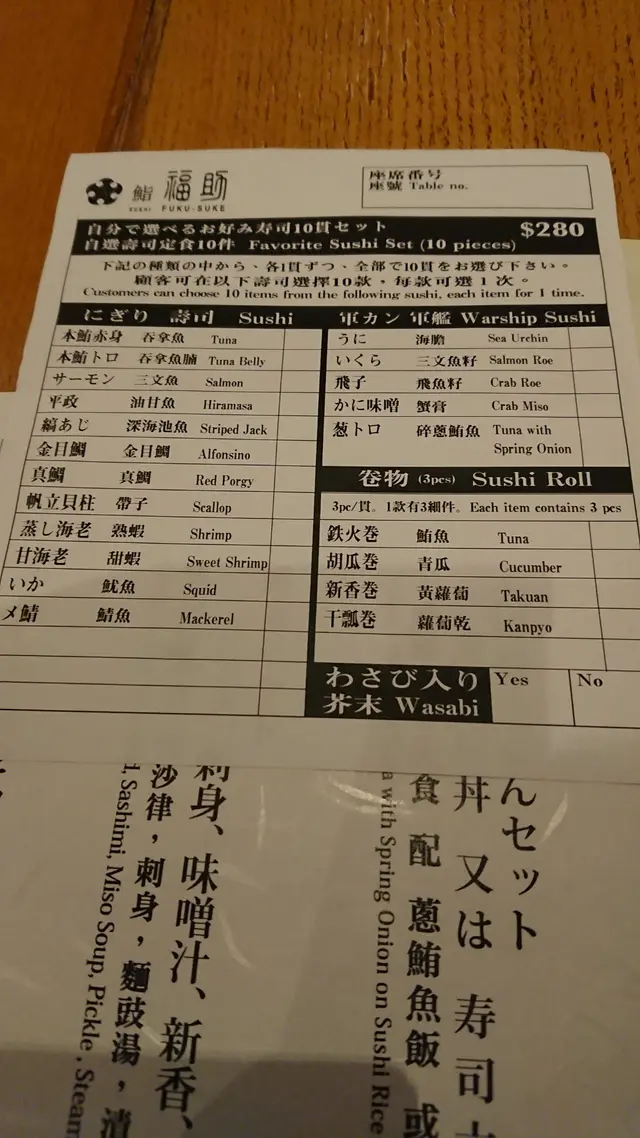 鮨 福助
SUSHI FUKU-SUKE
座席番号
座號 Table no.
自分で選べるお好み寿司10貫セット $280
自選壽司定食10件 Favorite Sushi Set (10 pieces)
下記の種類の中から、各1貫ずつ、全部で10貫をお選び下さい。
顧客可在以下壽司選擇10款，每款可選1次。
Customers can choose 10 items from the following sushi, each item for 1 time.
にぎり 壽司 Sushi
本鮪赤身 吞拿魚 Tuna
本鮪トロ 吞拿魚腩 Tuna Belly
サーモン 三文魚 Salmon
平政 油甘魚 Hiramasa
縞あじ 深海池魚 Striped Jack
金目鯛 金目鯛 Alfonsino
真鯛 真鯛 Red Porgy
帆立貝柱 帶子 Scallop
蒸し海老 熟蝦 Shrimp
甘海老 甜蝦 Sweet Shrimp
いか 魷魚 Squid
〆鯖 鯖魚 Mackerel
軍カン 軍艦 Warship Sushi
うに 海膽 Sea Urchin
いくら 三文魚籽 Salmon Roe
飛子 飛魚籽 Crab Roe
かに味噌 蟹膏 Crab Miso
葱トロ 碎蔥鮪魚 Tuna with
Spring Onion
卷物 (3pcs) Sushi Roll
3pc/貫。1款有3細件。Each item contains 3 pcs
鉄火巻 鮪魚 Tuna
胡瓜巻 青瓜 Cucumber
新香巻 黃蘿蔔 Takuan
干瓢巻 蘿蔔乾 Kanpyo
わさび入り Yes No
芥末 Wasabi
んセット
丼 又は 寿司
食 配 蔥鮪魚飯 或
with Spring Onion on Sushi Rice
刺身、味噌汁、新香、
沙律，刺身，麵豉湯，漬
Sashimi, Miso Soup, Pickle, Steam